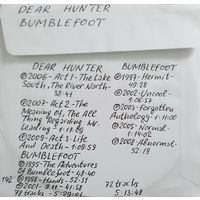 DEAR HUNTER
BUMBLEFOOT
DEAR HUNTER
©2006 - Act 1 - The Lake
South, The River North -
38:41
©2007 - Act 2 - The
Meaning Of, The All
Thing Regarding Ms.
Leading - 1:13:29
©2009 - Act 3 Life
And Death - 1:08:59
BUMBLEFOOT
©1995 - The Adventures
Of Bumblefoot - 48:40
©1998 - Hands - 52:31
©2001 - 9.11 - 41:58
72 tracks - 5:29:01
192
BUMBLEFOOT
©1997 - Hermit -
49:28
©2002 - Uncool -
1:06:57
©2003 - Forgotten
Anthology - 1:11:00
©2005 - Normal -
1:14:02
©2008 - Abnormal -
52:19
72 tracks
5:13:48